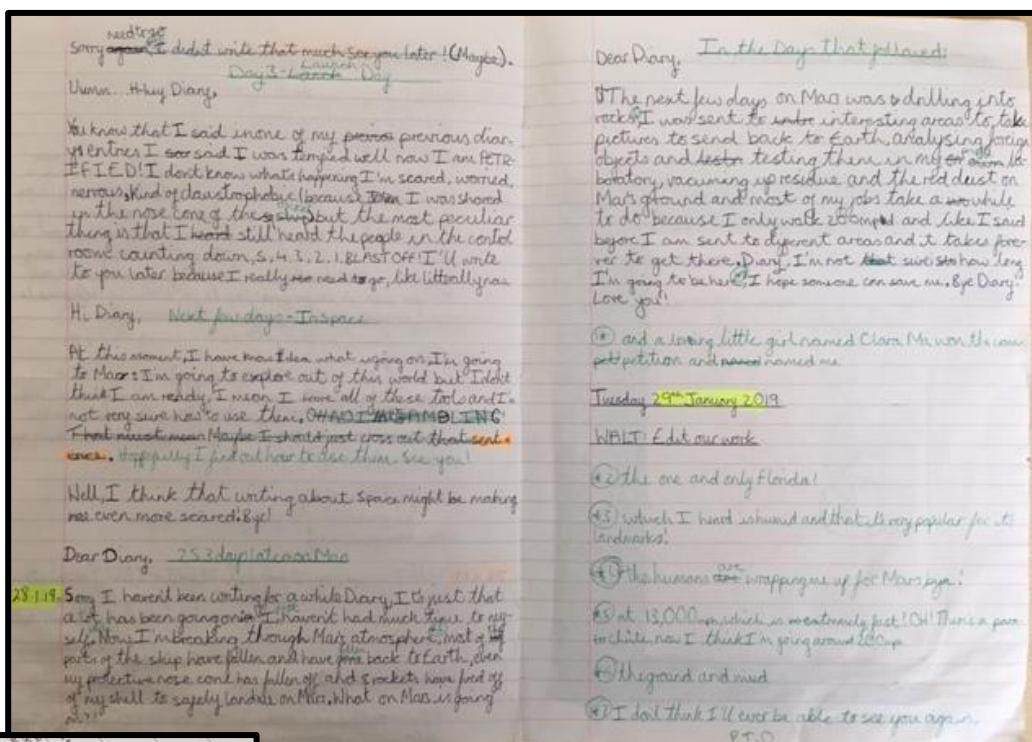 need to go
Sorry again I didn't write that much see you later! (Maybe).
Launch
Day 3 - Lanch Day
Uumm... H-hey Diary,
You know that I said in one of my previous previous diar-
ys entries I said I was terrified well now I am PETR-
IFIED! I don't know whats happening I'm scared, worried,
nervous, kind of claustrophobic (because I was shoved
in the nose cone of the ship) but the most peculiar
thing is that I heard still heard the people in the control
room counting down, 5.4.3.2.1. BLAST OFF! I'll write
to you later because I really need to go, like litterally now
Hi Diary, Next few days - In Space
At this moment, I have no idea what is going on, I'm going
to Mars! I'm going to explore out of this world but I don't
think I am ready, I mean I have all of these tools and I'm
not very sure how to use them. OH NO I'M GAMBLING!
That must mean Maybe I should just cross out that sent-
ence. Hoppfully I find out how to use them. See you!
Well, I think that writing about Space might be making
me even more scared! Bye!
Dear Diary, 253 days later on Mars
28.1.19. Sorry I haven't been writing for a while Diary, It's just that
a lot has been going on I haven't had much time to my-
self. Now I'm breaking through Mars atmosphere, most of
parts of the ship have fallen and have back to Earth, even
my protective nose cone has fallen off and rockets have fired off
of my shell to safely land on Mars. What on Mars is going
on?!
Dear Diary, In the Days that followed:
The next few days on Mars was drilling into
rocks, I was sent to interesting areas to take
pictures to send back to Earth, analysing foreign
objects and testing them in my la-
boratory, vacuming up residue and the red dust on
Mars ground and most of my jobs take a while
to do because I only walk 200mph and like I said
before I am sent to different areas and it takes fore-
ver to get there. Diary, I'm not that sure how long
I'm going to be here, I hope someone can save me. Bye Diary!
Love you!
and a loving little girl named Clara Ma won the com
petition and named me
Tuesday 29th January 2019
WALT: Edit our work
*2 the one and only Florida!
*3 which I heard is humid and that it's very popular for its
landmarks!
are
*4 the humans wrapping me up for Mars bye!
*5 at 13,000mph, which is extremely fast! OH! There's a para
chute, now I think I'm going around 200mph
*6 the ground and mud
*7 I don't think I'll ever be able to see you again.
P.T.O